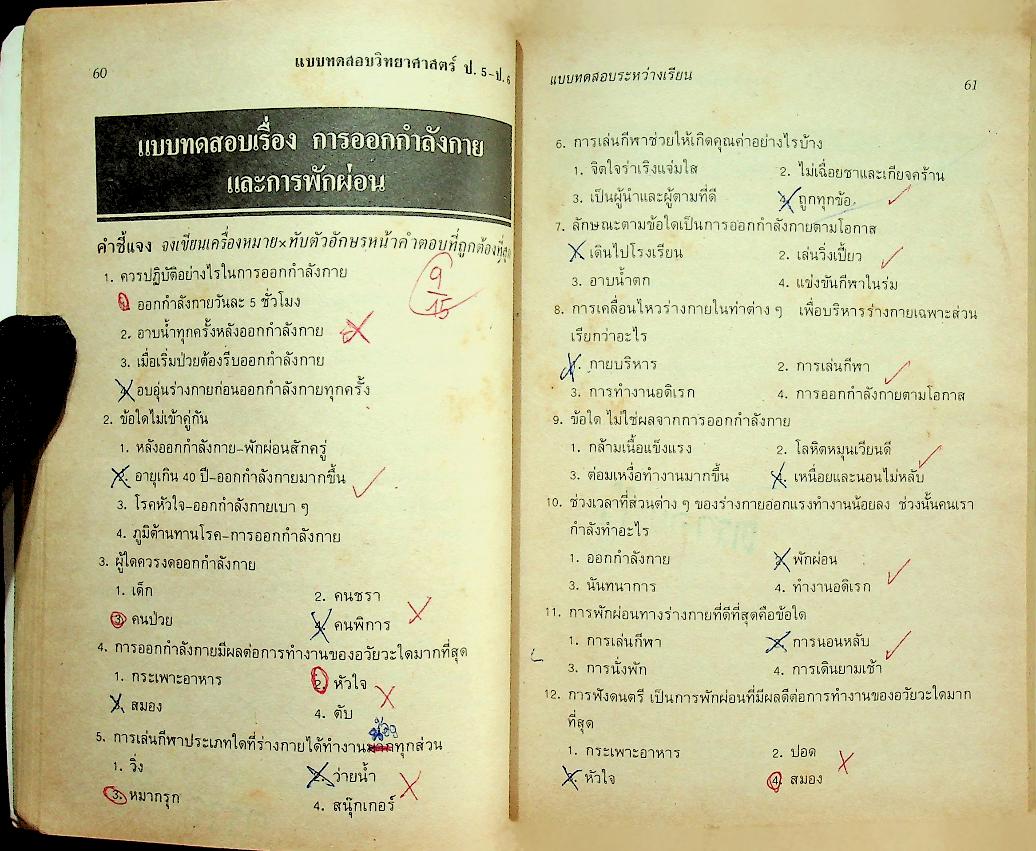 60
แบบทดสอบวิทยาศาสตร์ ป. 5-ป. 6
แบบทดสอบเรื่อง การออกกำลังกาย
และการพักผ่อน
คำชี้แจง จงเขียนเครื่องหมาย×ทับตัวอักษรหน้าคำตอบที่ถูกต้องที่สุด
9
15
1. ควรปฏิบัติอย่างไรในการออกกำลังกาย
1. ออกกำลังกายวันละ 5 ชั่วโมง
2. อาบน้ำทุกครั้งหลังออกกำลังกาย
3. เมื่อเริ่มป่วยต้องรีบออกกำลังกาย
4. อบอุ่นร่างกายก่อนออกกำลังกายทุกครั้ง
2. ข้อใดไม่เข้าคู่กัน
1. หลังออกกำลังกาย-พักผ่อนสักครู่
2. อายุเกิน 40 ปี-ออกกำลังกายมากขึ้น
3. โรคหัวใจ-ออกกำลังกายเบา ๆ
4. ภูมิต้านทานโรค-การออกกำลังกาย
3. ผู้ใดควรงดออกกำลังกาย
1. เด็ก 2. คนชรา
3. คนป่วย 4. คนพิการ
4. การออกกำลังกายมีผลต่อการทำงานของอวัยวะใดมากที่สุด
1. กระเพาะอาหาร 2. หัวใจ
3. สมอง 4. ตับ
น้อย
5. การเล่นกีฬาประเภทใดที่ร่างกายได้ทำงานมากทุกส่วน
1. วิ่ง 2. ว่ายน้ำ
3. หมากรุก 4. สนุ๊กเกอร์
แบบทดสอบระหว่างเรียน
61
6. การเล่นกีฬาช่วยให้เกิดคุณค่าอย่างไรบ้าง
1. จิตใจร่าเริงแจ่มใส 2. ไม่เฉื่อยชาและเกียจคร้าน
3. เป็นผู้นำและผู้ตามที่ดี 4. ถูกทุกข้อ
7. ลักษณะตามข้อใดเป็นการออกกำลังกายตามโอกาส
1. เดินไปโรงเรียน 2. เล่นวิ่งเปี้ยว
3. อาบน้ำตก 4. แข่งขันกีฬาในร่ม
8. การเคลื่อนไหวร่างกายในท่าต่าง ๆ เพื่อบริหารร่างกายเฉพาะส่วน
เรียกว่าอะไร
1. กายบริหาร 2. การเล่นกีฬา
3. การทำงานอดิเรก 4. การออกกำลังกายตามโอกาส
9. ข้อใด ไม่ใช่ผลจากการออกกำลังกาย
1. กล้ามเนื้อแข็งแรง 2. โลหิตหมุนเวียนดี
3. ต่อมเหงื่อทำงานมากขึ้น 4. เหนื่อยและนอนไม่หลับ
10. ช่วงเวลาที่ส่วนต่าง ๆ ของร่างกายออกแรงทำงานน้อยลง ช่วงนั้นคนเรา
กำลังทำอะไร
1. ออกกำลังกาย 2. พักผ่อน
3. นันทนาการ 4. ทำงานอดิเรก
11. การพักผ่อนทางร่างกายที่ดีที่สุดคือข้อใด
1. การเล่นกีฬา 2. การนอนหลับ
3. การนั่งพัก 4. การเดินยามเช้า
12. การฟังดนตรี เป็นการพักผ่อนที่มีผลดีต่อการทำงานของอวัยวะใดมาก
ที่สุด
1. กระเพาะอาหาร 2. ปอด
3. หัวใจ 4. สมอง